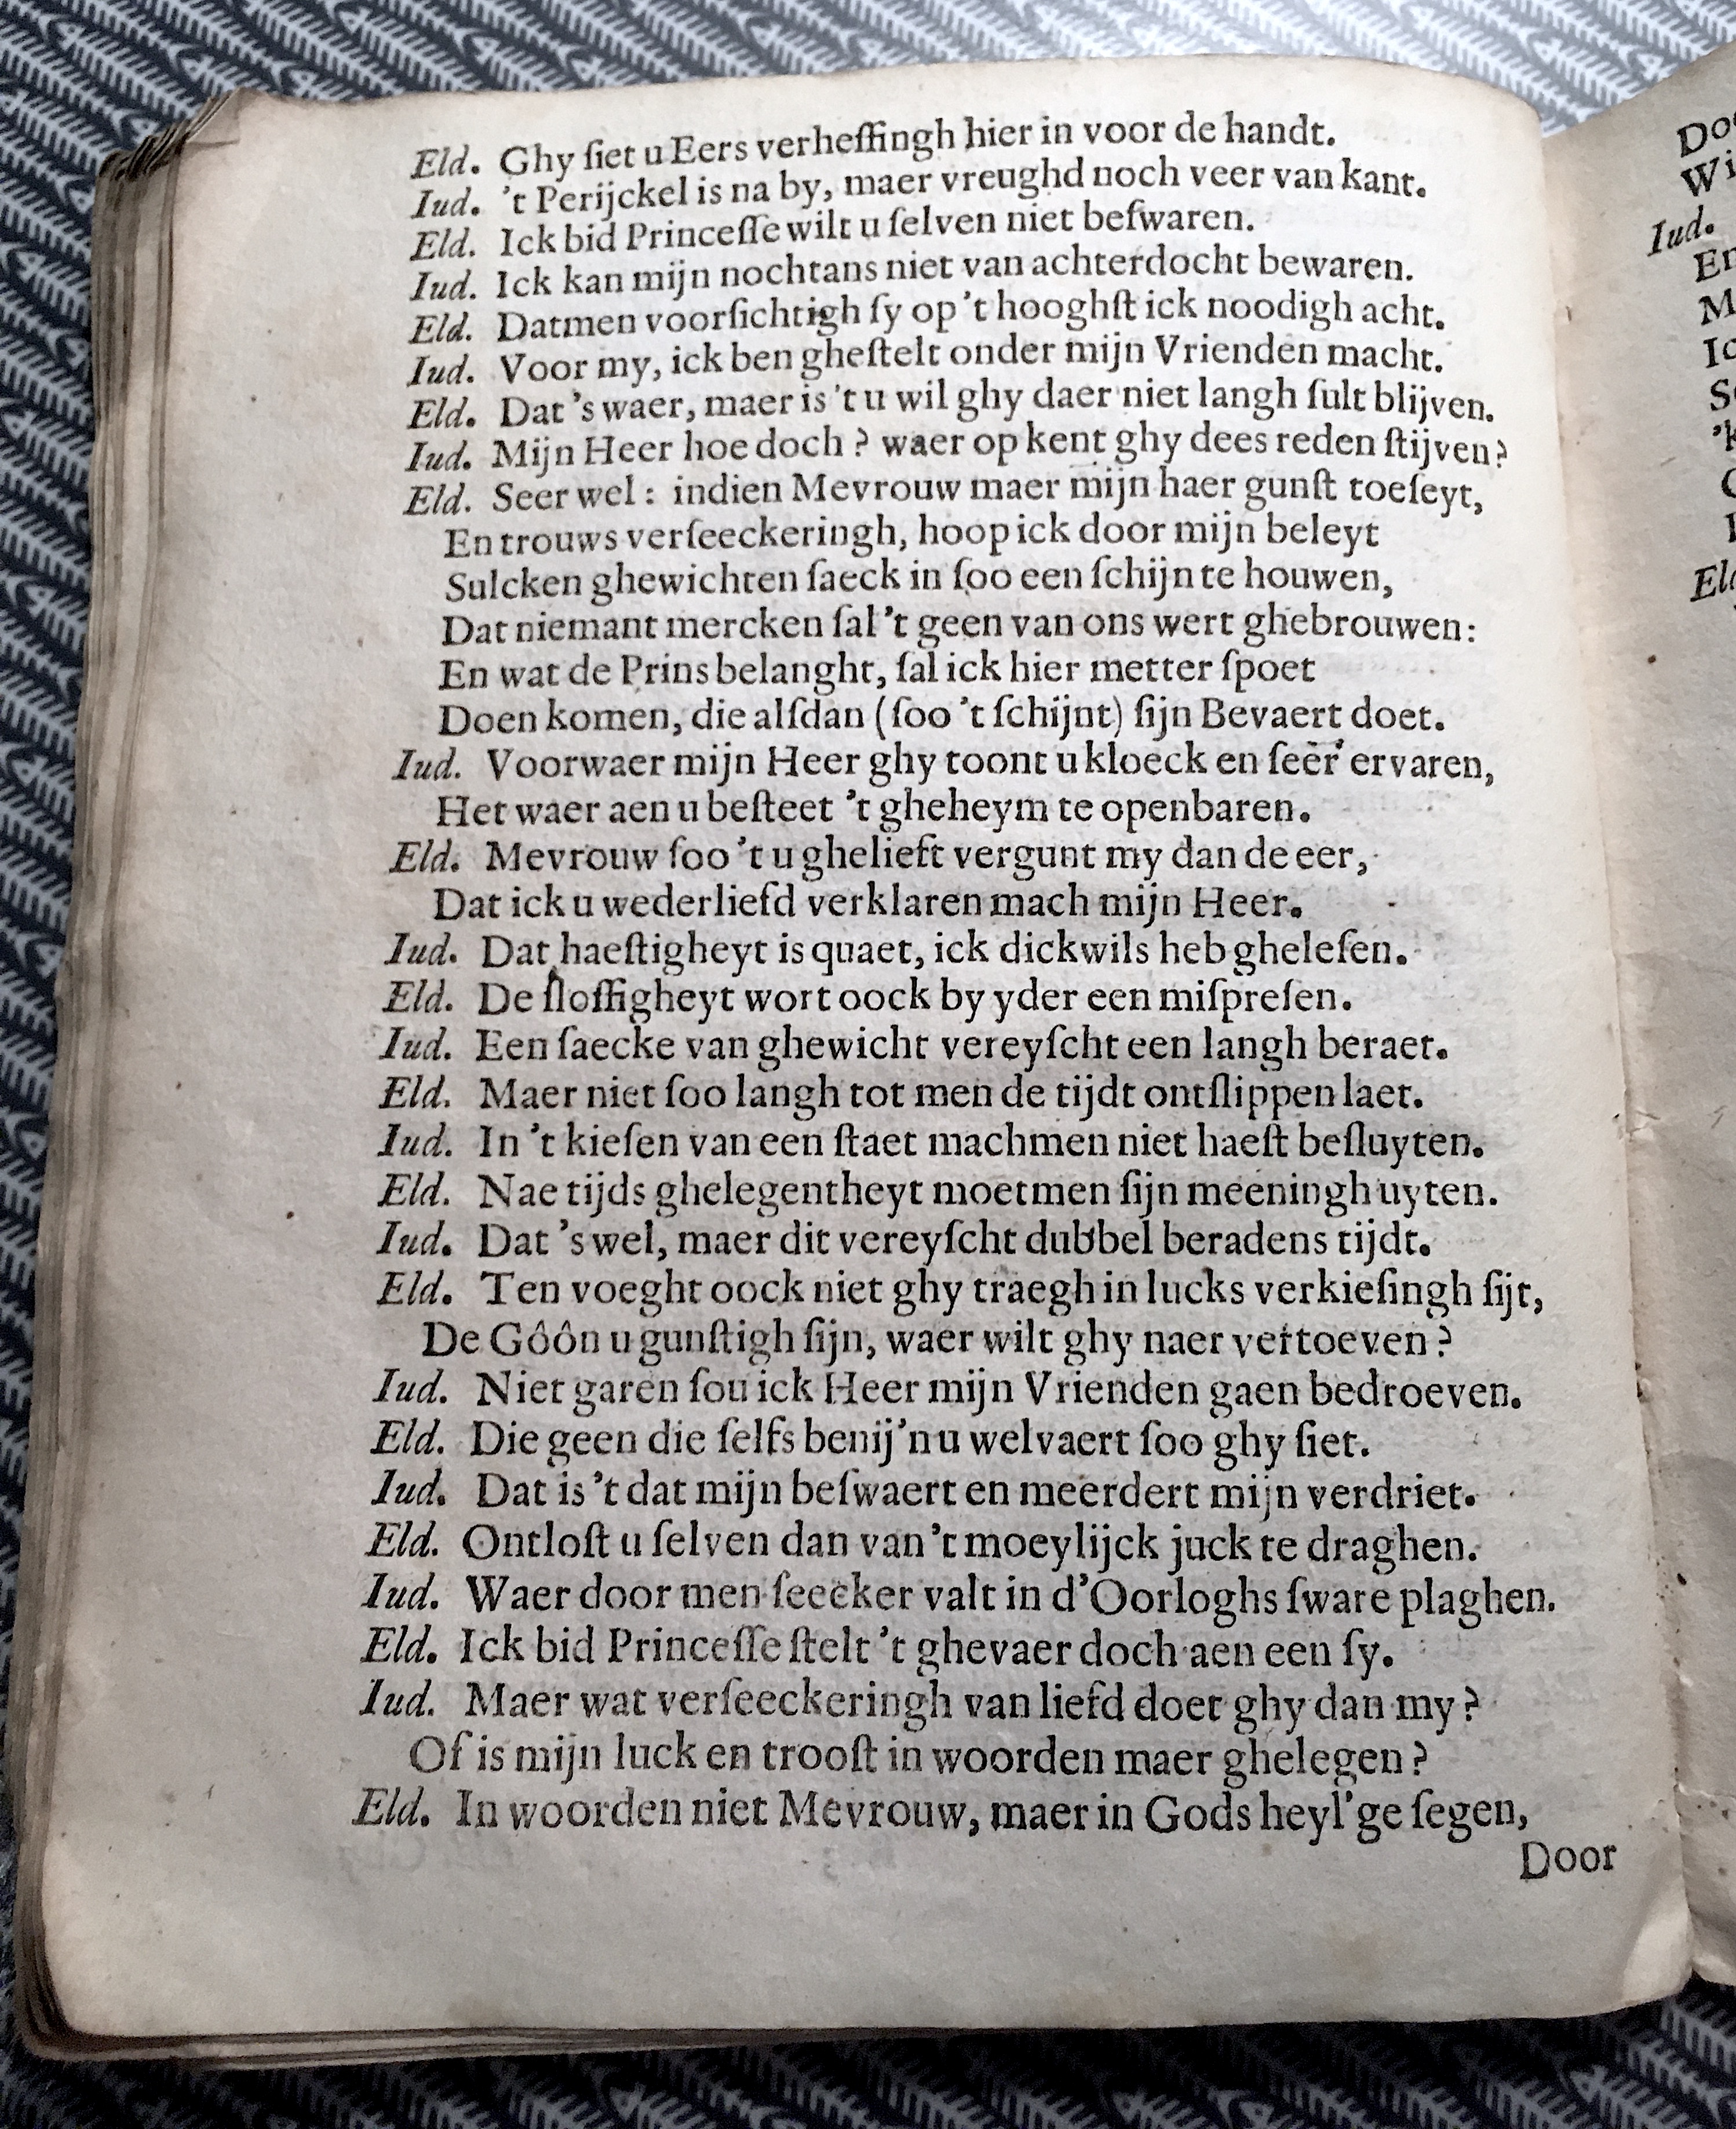 Eld. Ghy ſiet u Eers verheffingh hier in voor de handt.
Iud. 't Perijckel is na by, maer vreughd noch veer van kant.
Eld. Ick bid Princeſſe wilt u ſelven niet beſwaren.
Iud. Ick kan mijn nochtans niet van achterdocht bewaren.
Eld. Datmen voorſichtigh ſy op 't hooghſt ick noodigh acht.
Iud. Voor my, ick ben gheſtelt onder mijn Vrienden macht.
Eld. Dat 's waer, maer is 't u wil ghy daer niet langh ſult blijven.
Iud. Mijn Heer hoe doch? waer op kent ghy dees reden ſtijven?
Eld. Seer wel: indien Mevrouw maer mijn haer gunſt toeſeyt,
En trouws verſeeckeringh, hoop ick door mijn beleyt
Sulcken ghewichten ſaeck in ſoo een ſchijn te houwen,
Dat niemant mercken ſal 't geen van ons wert ghebrouwen:
En wat de Prins belanght, ſal ick hier metter ſpoet
Doen komen, die alſdan (ſoo 't ſchijnt) ſijn Bevaert doet.
Iud. Voorwaer mijn Heer ghy toont u kloeck en ſeer ervaren,
Het waer aen u beſteet 't gheheym te openbaren.
Eld. Mevrouw ſoo 't u ghelieft vergunt my dan de eer,
Dat ick u wederliefd verklaren mach mijn Heer.
Iud. Dat haeſtigheyt is quaet, ick dickwils heb gheleſen.
Eld. De ſloffigheyt wort oock by yder een miſpreſen.
Iud. Een ſaecke van ghewicht vereyſcht een langh beraet.
Eld. Maer niet ſoo langh tot men de tijdt ontſlippen laet.
Iud. In 't kieſen van een ſtaet machmen niet haeſt beſluyten.
Eld. Nae tijds ghelegentheyt moetmen ſijn meeningh uyten.
Iud. Dat 's wel, maer dit vereyſcht dubbel beradens tijdt.
Eld. Ten voeght oock niet ghy traegh in lucks verkieſingh ſijt,
De Gôôn u gunſtigh ſijn, waer wilt ghy naer vertoeven?
Iud. Niet garen ſou ick Heer mijn Vrienden gaen bedroeven.
Eld. Die geen die ſelfs benij'n u welvaert ſoo ghy ſiet.
Iud. Dat is 't dat mijn beſwaert en meerdert mijn verdriet.
Eld. Ontloſt u ſelven dan van 't moeylijck juck te draghen.
Iud. Waer door men ſeecker valt in d'Oorloghs ſware plaghen.
Eld. Ick bid Princeſſe ſtelt 't ghevaer doch aen een ſy.
Iud. Maer wat verſeeckeringh van liefd doet ghy dan my?
Of is mijn luck en trooſt in woorden maer ghelegen?
Eld. In woorden niet Mevrouw, maer in Gods heyl'ge ſegen,
Door
Iud.